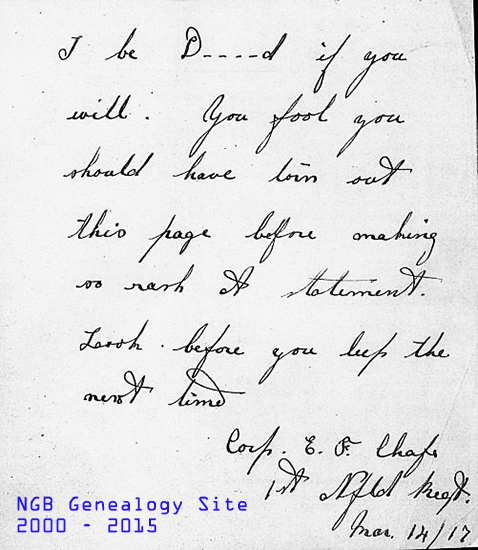 I be D----d if you
will. You fool you
should have torn out
this page before making
so rash A statement.
Loook before you leep the
next time
Corp. E. F. Chafe
1st Nfld Regt.
Mar. 14/17
NGB Genealogy Site
2000 - 2015